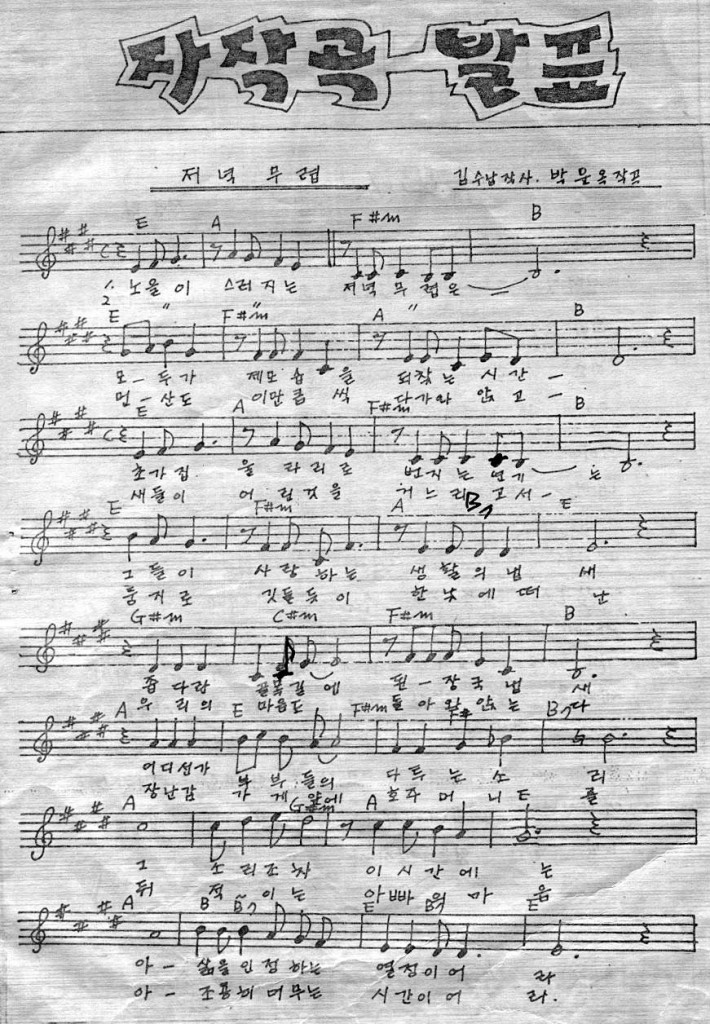 자작곡 발표
저녁 무렵 김수남작사. 박문옥작곡
E A F#m B
1. 노을이 스러지는 저녁 무렵은 -
2 " " "
E F#m A B
모-두가 제모습을 되찾는 시간-
먼-산도 이만큼씩 다가와 앉고-
E A F#m B
초가집 울타리로 번지는 연기 는
새들이 어린것을 거느리고서-
E F#m A B7 E
그들이 사랑하는 생활의 냄새
둥지로 깃들듯이 한낮에 떠난
G#m C#m F#m B
좁다란 골목길에 된-장국 냄새
우리의 마음도 돌아와 앉는다
A E F#m F# B7
어디선가 부부들의 다투는 소리
장난감 가게앞에 호주머니를
A G#m A E
그 소리조차 이시간에 는
뒤 적이는 아빠의 마음
A B B7 E B7 E
아- 삶을 인정하는 열정이어라
아- 조용히 머무는 시간이어라.